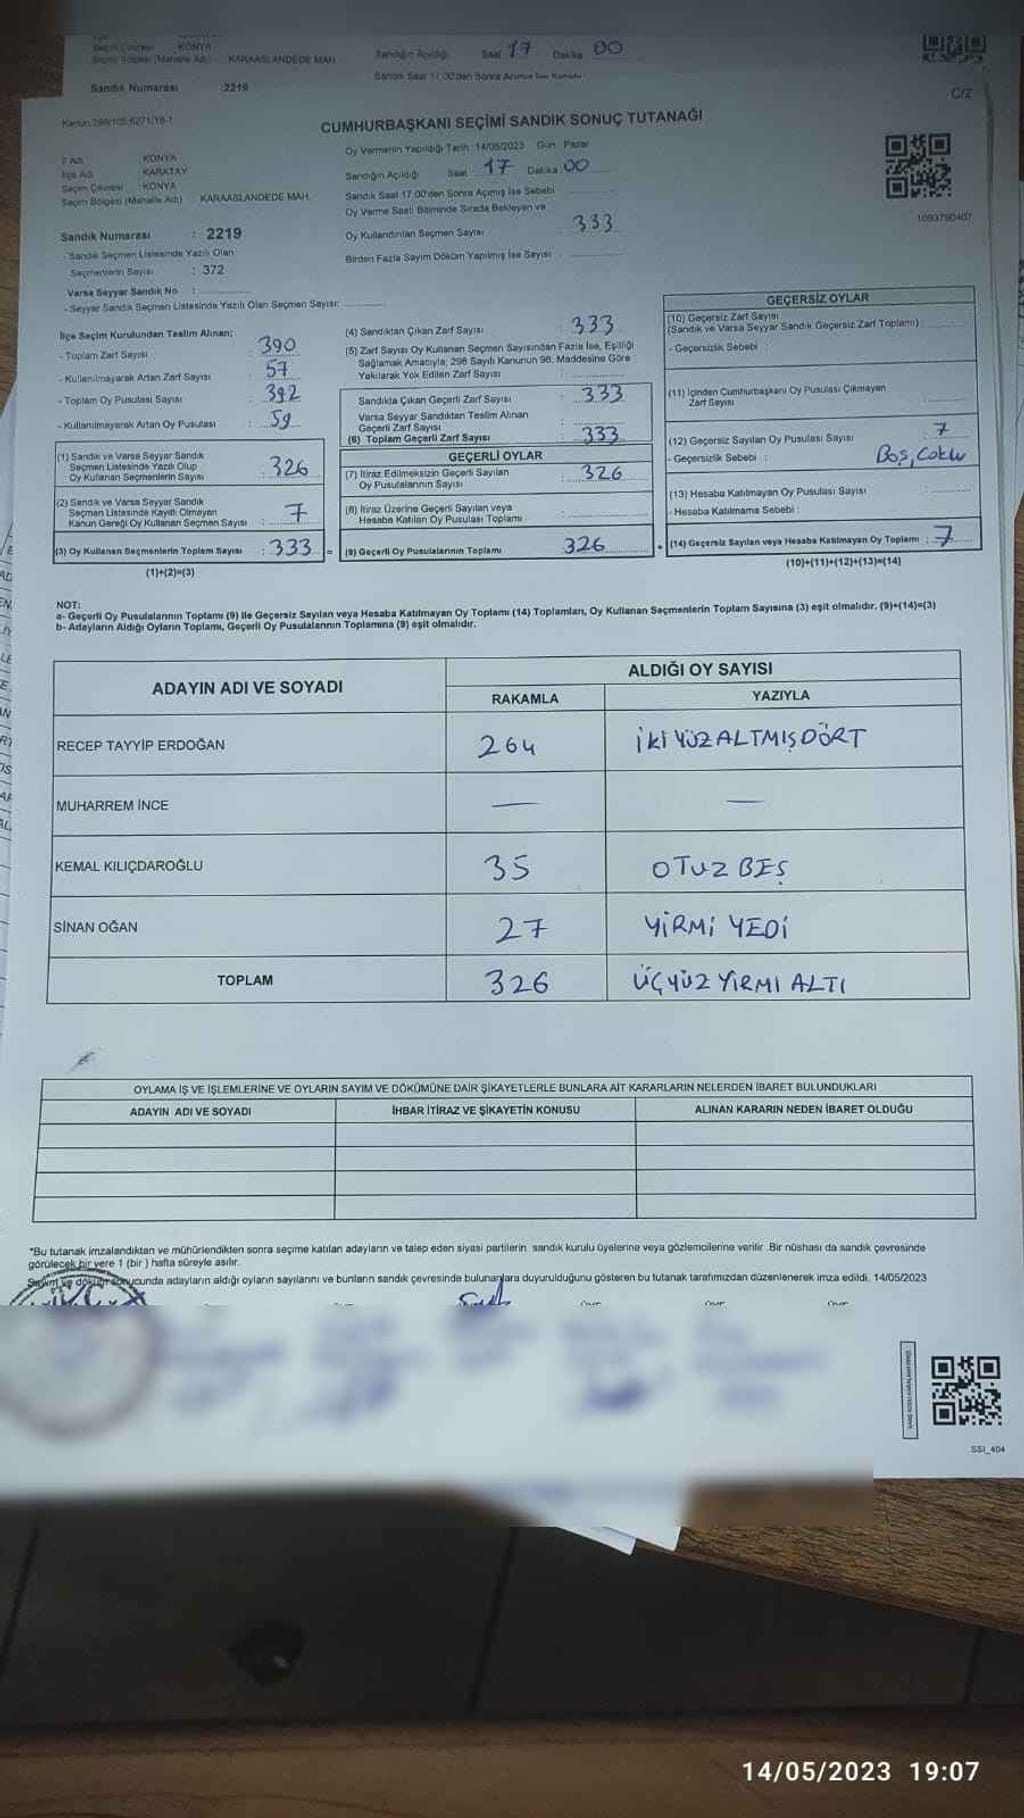 KONYA
KARAASLANDEDE MAH.
Sandığın Açıldığı Saat 17 Dakika 00
Sandık Numarası :2219
C/2
CUMHURBAŞKANI SEÇİMİ SANDIK SONUÇ TUTANAĞI
Oy Vermenin Yapıldığı Tarih :14/05/2023 Gün :Pazar
İl Adı KONYA
İlçe Adı KARATAY
Seçim Çevresi KONYA
Seçim Bölgesi (Mahalle Adı) KARAASLANDEDE MAH.
Sandığın Açıldığı Saat 17 Dakika 00
Sandık Saat 17:00'den Sonra Açımış İse Sebebi
Oy Verme Saati Bitiminde Sırada Bekleyen ve
Oy Kullandırılan Seçmen Sayısı 333
Birden Fazla Sayım Döküm Yapılmış İse Sayısı
1093790407
Sandık Numarası : 2219
- Sandık Seçmen Listesinde Yazılı Olan
Seçmenlerin Sayısı : 372
Varsa Seyyar Sandık No :
- Seyyar Sandık Seçmen Listesinde Yazılı Olan Seçmen Sayısı:
İlçe Seçim Kurulundan Teslim Alınan;
- Toplam Zarf Sayısı : 390
- Kullanılmayarak Artan Zarf Sayısı : 57
- Toplam Oy Pusulası Sayısı : 392
- Kullanılmayarak Artan Oy Pusulası : 59
(1) Sandık ve Varsa Seyyar Sandık
Seçmen Listesinde Yazılı Olup
Oy Kullanan Seçmenlerin Sayısı : 326
(2) Sandık ve Varsa Seyyar Sandık
Seçmen Listesinde Kayıtlı Olmayan
Kanun Gereği Oy Kullanan Seçmen Sayısı : 7
(3) Oy Kullanan Seçmenlerin Toplam Sayısı : 333 =
(1)+(2)=(3)
(4) Sandıktan Çıkan Zarf Sayısı : 333
(5) Zarf Sayısı Oy Kullanan Seçmen Sayısından Fazla İse, Eşitliği
Sağlamak Amacıyla; 298 Sayılı Kanunun 98. Maddesine Göre
Yakılarak Yok Edilen Zarf Sayısı
Sandıkta Çıkan Geçerli Zarf Sayısı : 333
Varsa Seyyar Sandıktan Teslim Alınan
Geçerli Zarf Sayısı
(6) Toplam Geçerli Zarf Sayısı : 333
GEÇERLİ OYLAR
(7) İtiraz Edilmeksizin Geçerli Sayılan
Oy Pusulalarının Sayısı : 326
(8) İtiraz Üzerine Geçerli Sayılan veya
Hesaba Katılan Oy Pusulası Toplamı
(9) Geçerli Oy Pusulalarının Toplamı 326
GEÇERSİZ OYLAR
(10) Geçersiz Zarf Sayısı
(Sandık ve Varsa Seyyar Sandık Geçersiz Zarf Toplamı)
- Geçersizlik Sebebi :
(11) İçinden Cumhurbaşkanı Oy Pusulası Çıkmayan
Zarf Sayısı
(12) Geçersiz Sayılan Oy Pusulası Sayısı 7
- Geçersizlik Sebebi : Boş, Çoklu
(13) Hesaba Katılmayan Oy Pusulası Sayısı
- Hesaba Katılmama Sebebi :
+ (14) Geçersiz Sayılan veya Hesaba Katılmayan Oy Toplamı : 7
(10)+(11)+(12)+(13)=(14)
NOT:
a- Geçerli Oy Pusulalarının Toplamı (9) ile Geçersiz Sayılan veya Hesaba Katılmayan Oy Toplamı (14) Toplamları, Oy Kullanan Seçmenlerin Toplam Sayısına (3) eşit olmalıdır. (9)+(14)=(3)
b- Adayların Aldığı Oyların Toplamı, Geçerli Oy Pusulalarının Toplamına (9) eşit olmalıdır.
ADAYIN ADI VE SOYADI
ALDIĞI OY SAYISI
RAKAMLA YAZIYLA
RECEP TAYYİP ERDOĞAN 264 İKİ YÜZ ALTMIŞ DÖRT
MUHARREM İNCE — —
KEMAL KILIÇDAROĞLU 35 OTUZ BEŞ
SİNAN OĞAN 27 YİRMİ YEDİ
TOPLAM 326 ÜÇYÜZ YİRMİ ALTI
OYLAMA İŞ VE İŞLEMLERİNE VE OYLARIN SAYIM VE DÖKÜMÜNE DAİR ŞİKAYETLERLE BUNLARA AİT KARARLARIN NELERDEN İBARET BULUNDUKLARI
ADAYIN ADI VE SOYADI İHBAR İTİRAZ VE ŞİKAYETİN KONUSU ALINAN KARARIN NEDEN İBARET OLDUĞU
*Bu tutanak imzalandıktan ve mühürlendikten sonra seçime katılan adayların ve talep eden siyasi partilerin sandık kurulu üyelerine veya gözlemcilerine verilir. Bir nüshası da sandık çevresinde
görülecek bir yere 1 (bir) hafta süreyle asılır.
Sayım ve döküm sonucunda adayların aldığı oyların sayılarını ve bunların sandık çevresinde bulunanlara duyurulduğunu gösteren bu tutanak tarafımızdan düzenlenerek imza edildi. 14/05/2023
SSI_404
14/05/2023 19:07